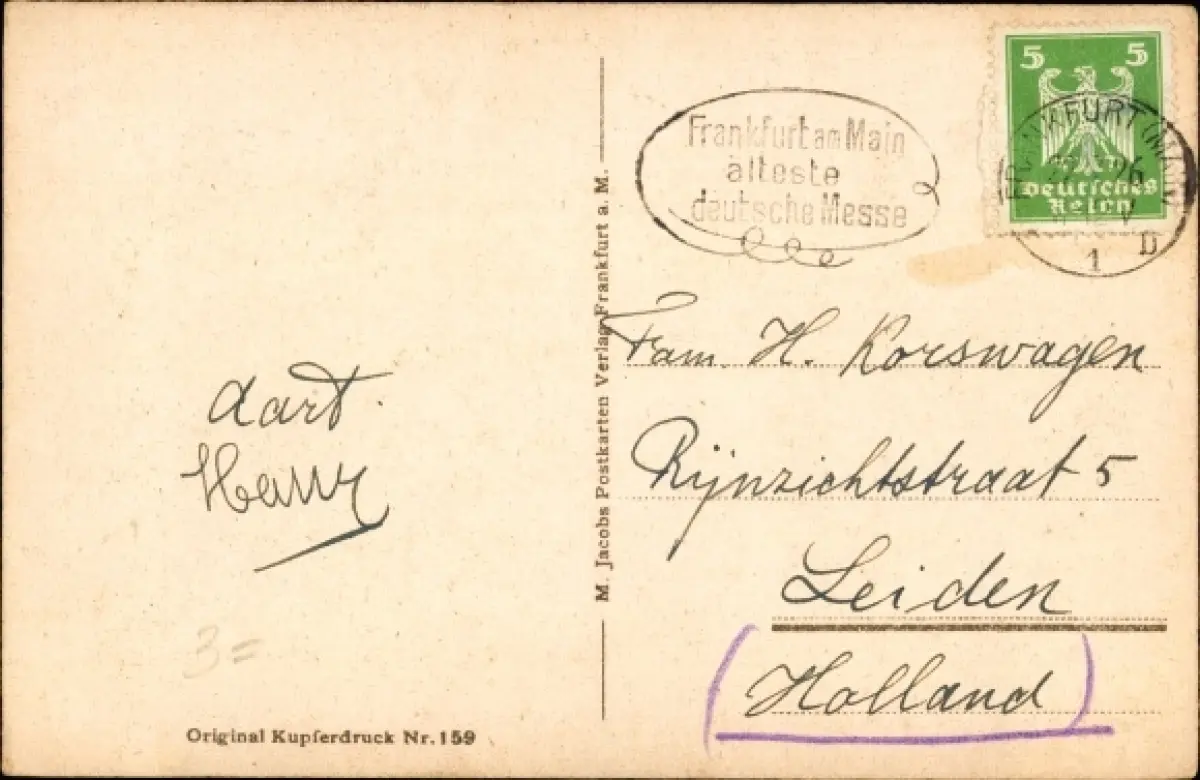 5 5
Deutsches
Reich
FRANKFURT (MAIN)
26
V
1 D
Frankfurt am Main
älteste
deutsche Messe
Fam. H. Korswagen
Rijnzichtstraat 5
Leiden
(Holland)
Aart.
3=
Original Kupferdruck Nr. 159
M. Jacobs Postkarten Verlag Frankfurt a. M.